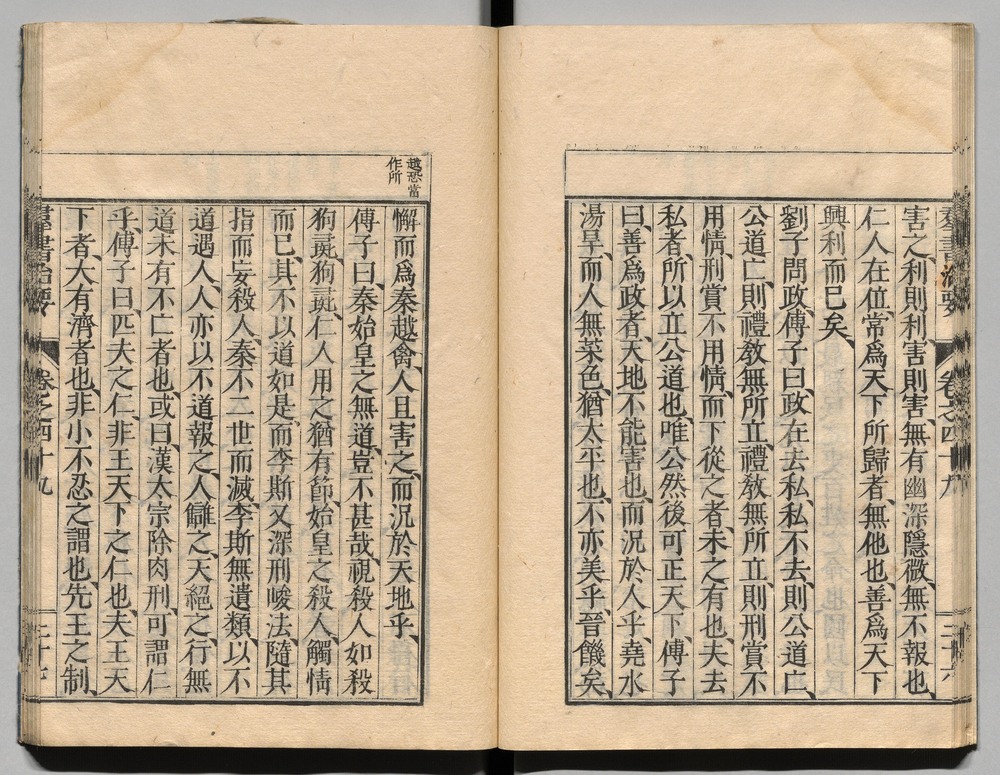 羣書治要　卷之四十九　三十六
害之、利則利、害則害、無有幽深隱微、無不報也、
仁人在位、常爲天下所歸者、無他也、善爲天下
興利而已矣、
劉子問政、傅子曰、政在去私、私不去、則公道亡、
公道亡、則禮敎無所立、禮敎無所立、則刑賞不
用情、刑賞不用情、而下從之者、未之有也、夫去
私者、所以立公道也、唯公然後可正天下、傅子
曰、善爲政者、天地不能害也、而況於人乎、堯水
湯旱、而人無菜色、猶太平也、不亦美乎、晉饑矣、
越恐當
作所
懈而爲秦越禽、人且害之、而況於天地乎、
傅子曰、秦始皇之無道、豈不甚哉、視殺人如殺
狗彘、狗彘、仁人用之猶有節、始皇之殺人、觸情
而已、其不以道如是、而李斯又深刑峻法、隨其
指而妄殺人、秦不二世而滅、李斯無遺類、以不
道遇人、人亦以不道報之、人讎之、天絕之、行無
道未有不亡者也、或曰、漢太宗除肉刑、可謂仁
乎、傅子曰、匹夫之仁、非王天下之仁也、夫王天
下者、大有濟者也、非小不忍之謂也、先王之制、
羣書治要　卷之四十九　三十六